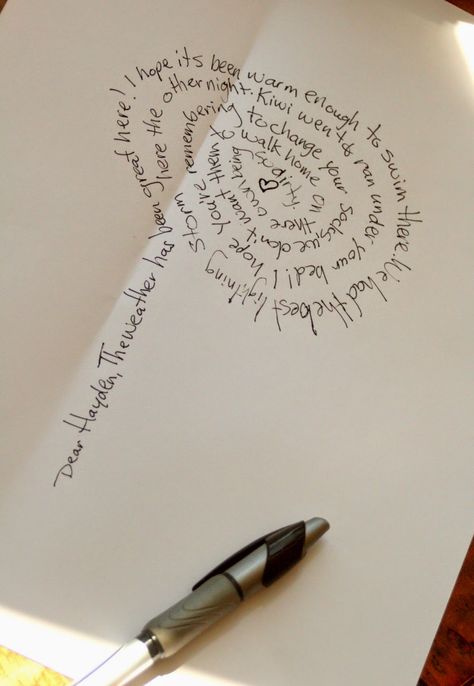 Dear Hayden, The weather has been great here! I hope its been warm enough to swim there. We had the best lightning storm here the other night. Kiwi went ran under your bed! I hope you're remembering to change your socks, we don't want them walk home on there own being so dirty.